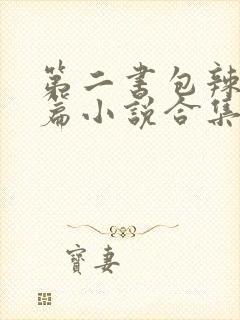 第二书包辣
篇小说合集
寶妻